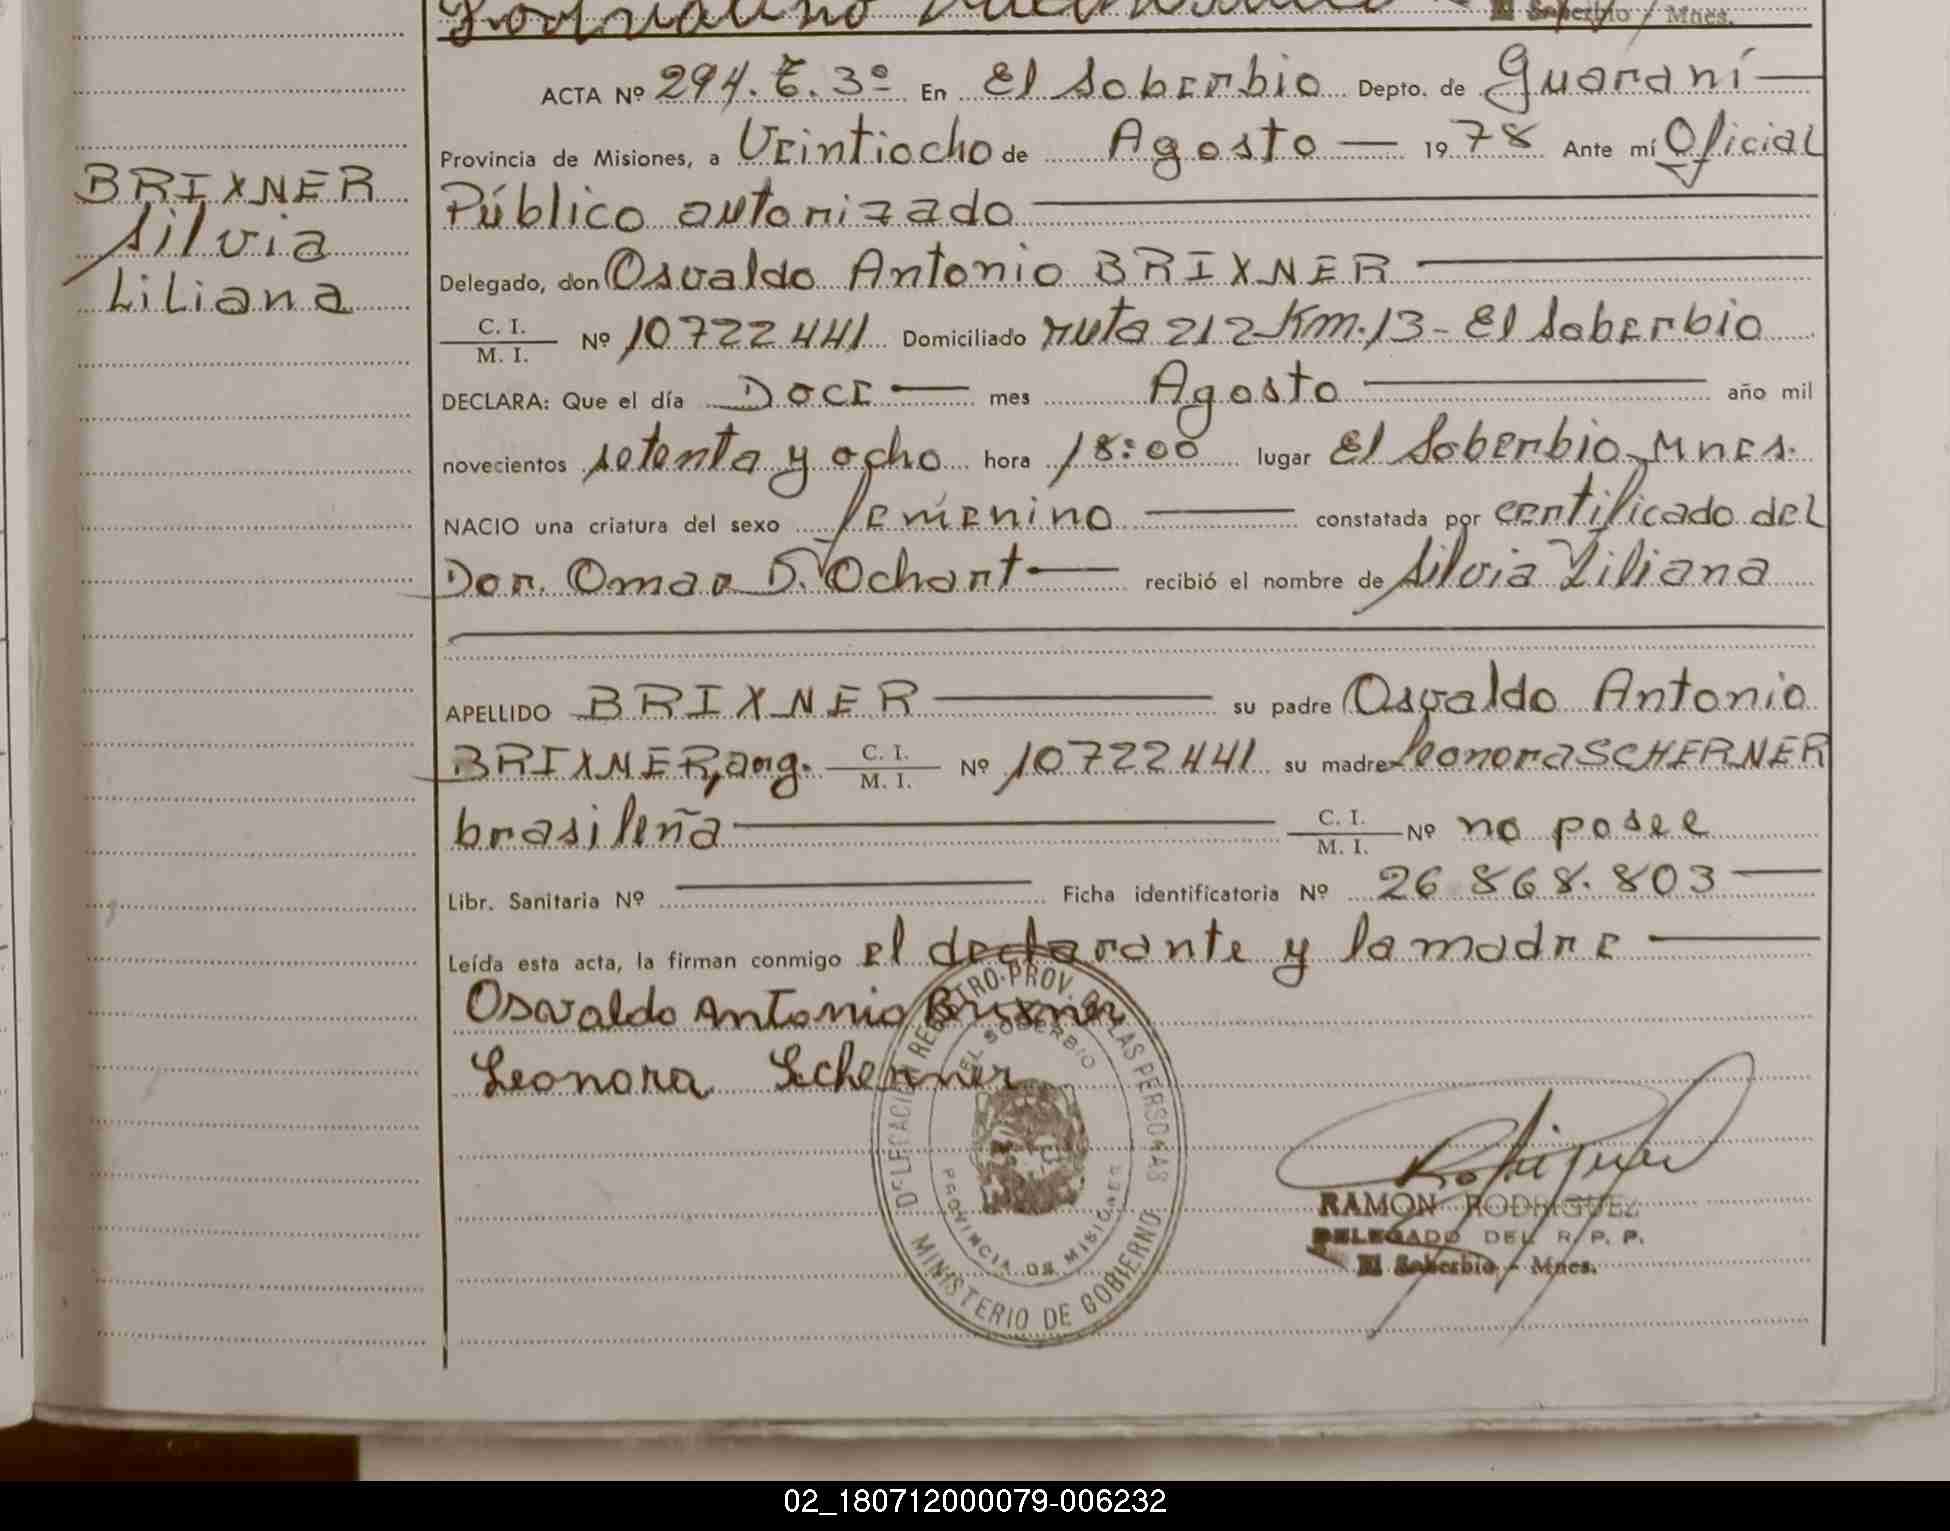 El Soberbio / Mnes.
ACTA Nº 294. T. 3º En El Soberbio Depto. de Guaraní
Provincia de Misiones, a Veintiocho de Agosto 1978 Ante mí Oficial
Público autorizado
Delegado, don Osvaldo Antonio BRIXNER
C. I.
M. I. Nº 10722441 Domiciliado ruta 212 Km. 13 - El Soberbio
DECLARA: Que el día Doce mes Agosto año mil
novecientos setenta y ocho hora 18:00 lugar El Soberbio Mnes.
NACIO una criatura del sexo femenino constatada por certificado del
Dor. Omar D. Ochart recibió el nombre de Silvia Liliana
APELLIDO BRIXNER su padre Osvaldo Antonio
BRIXNER, arg. C. I.
M. I. Nº 10722441 su madre Leonora SCHERNER
brasileña C. I.
M. I. Nº no posee
Libr. Sanitaria Nº Ficha identificatoria Nº 26 868.803
Leída esta acta, la firman conmigo el declarante y la madre
Osvaldo Antonio Brixner
Leonora Scherner
BRIXNER
Silvia
Liliana
DELEGACION REGISTRO PROV. DE LAS PERSONAS
EL SOBERBIO
PROVINCIA DE MISIONES
MINISTERIO DE GOBIERNO
RAMON RODRIGUEZ
DELEGADO DEL R. P. P.
El Soberbio - Mnes.
02_180712000079-006232